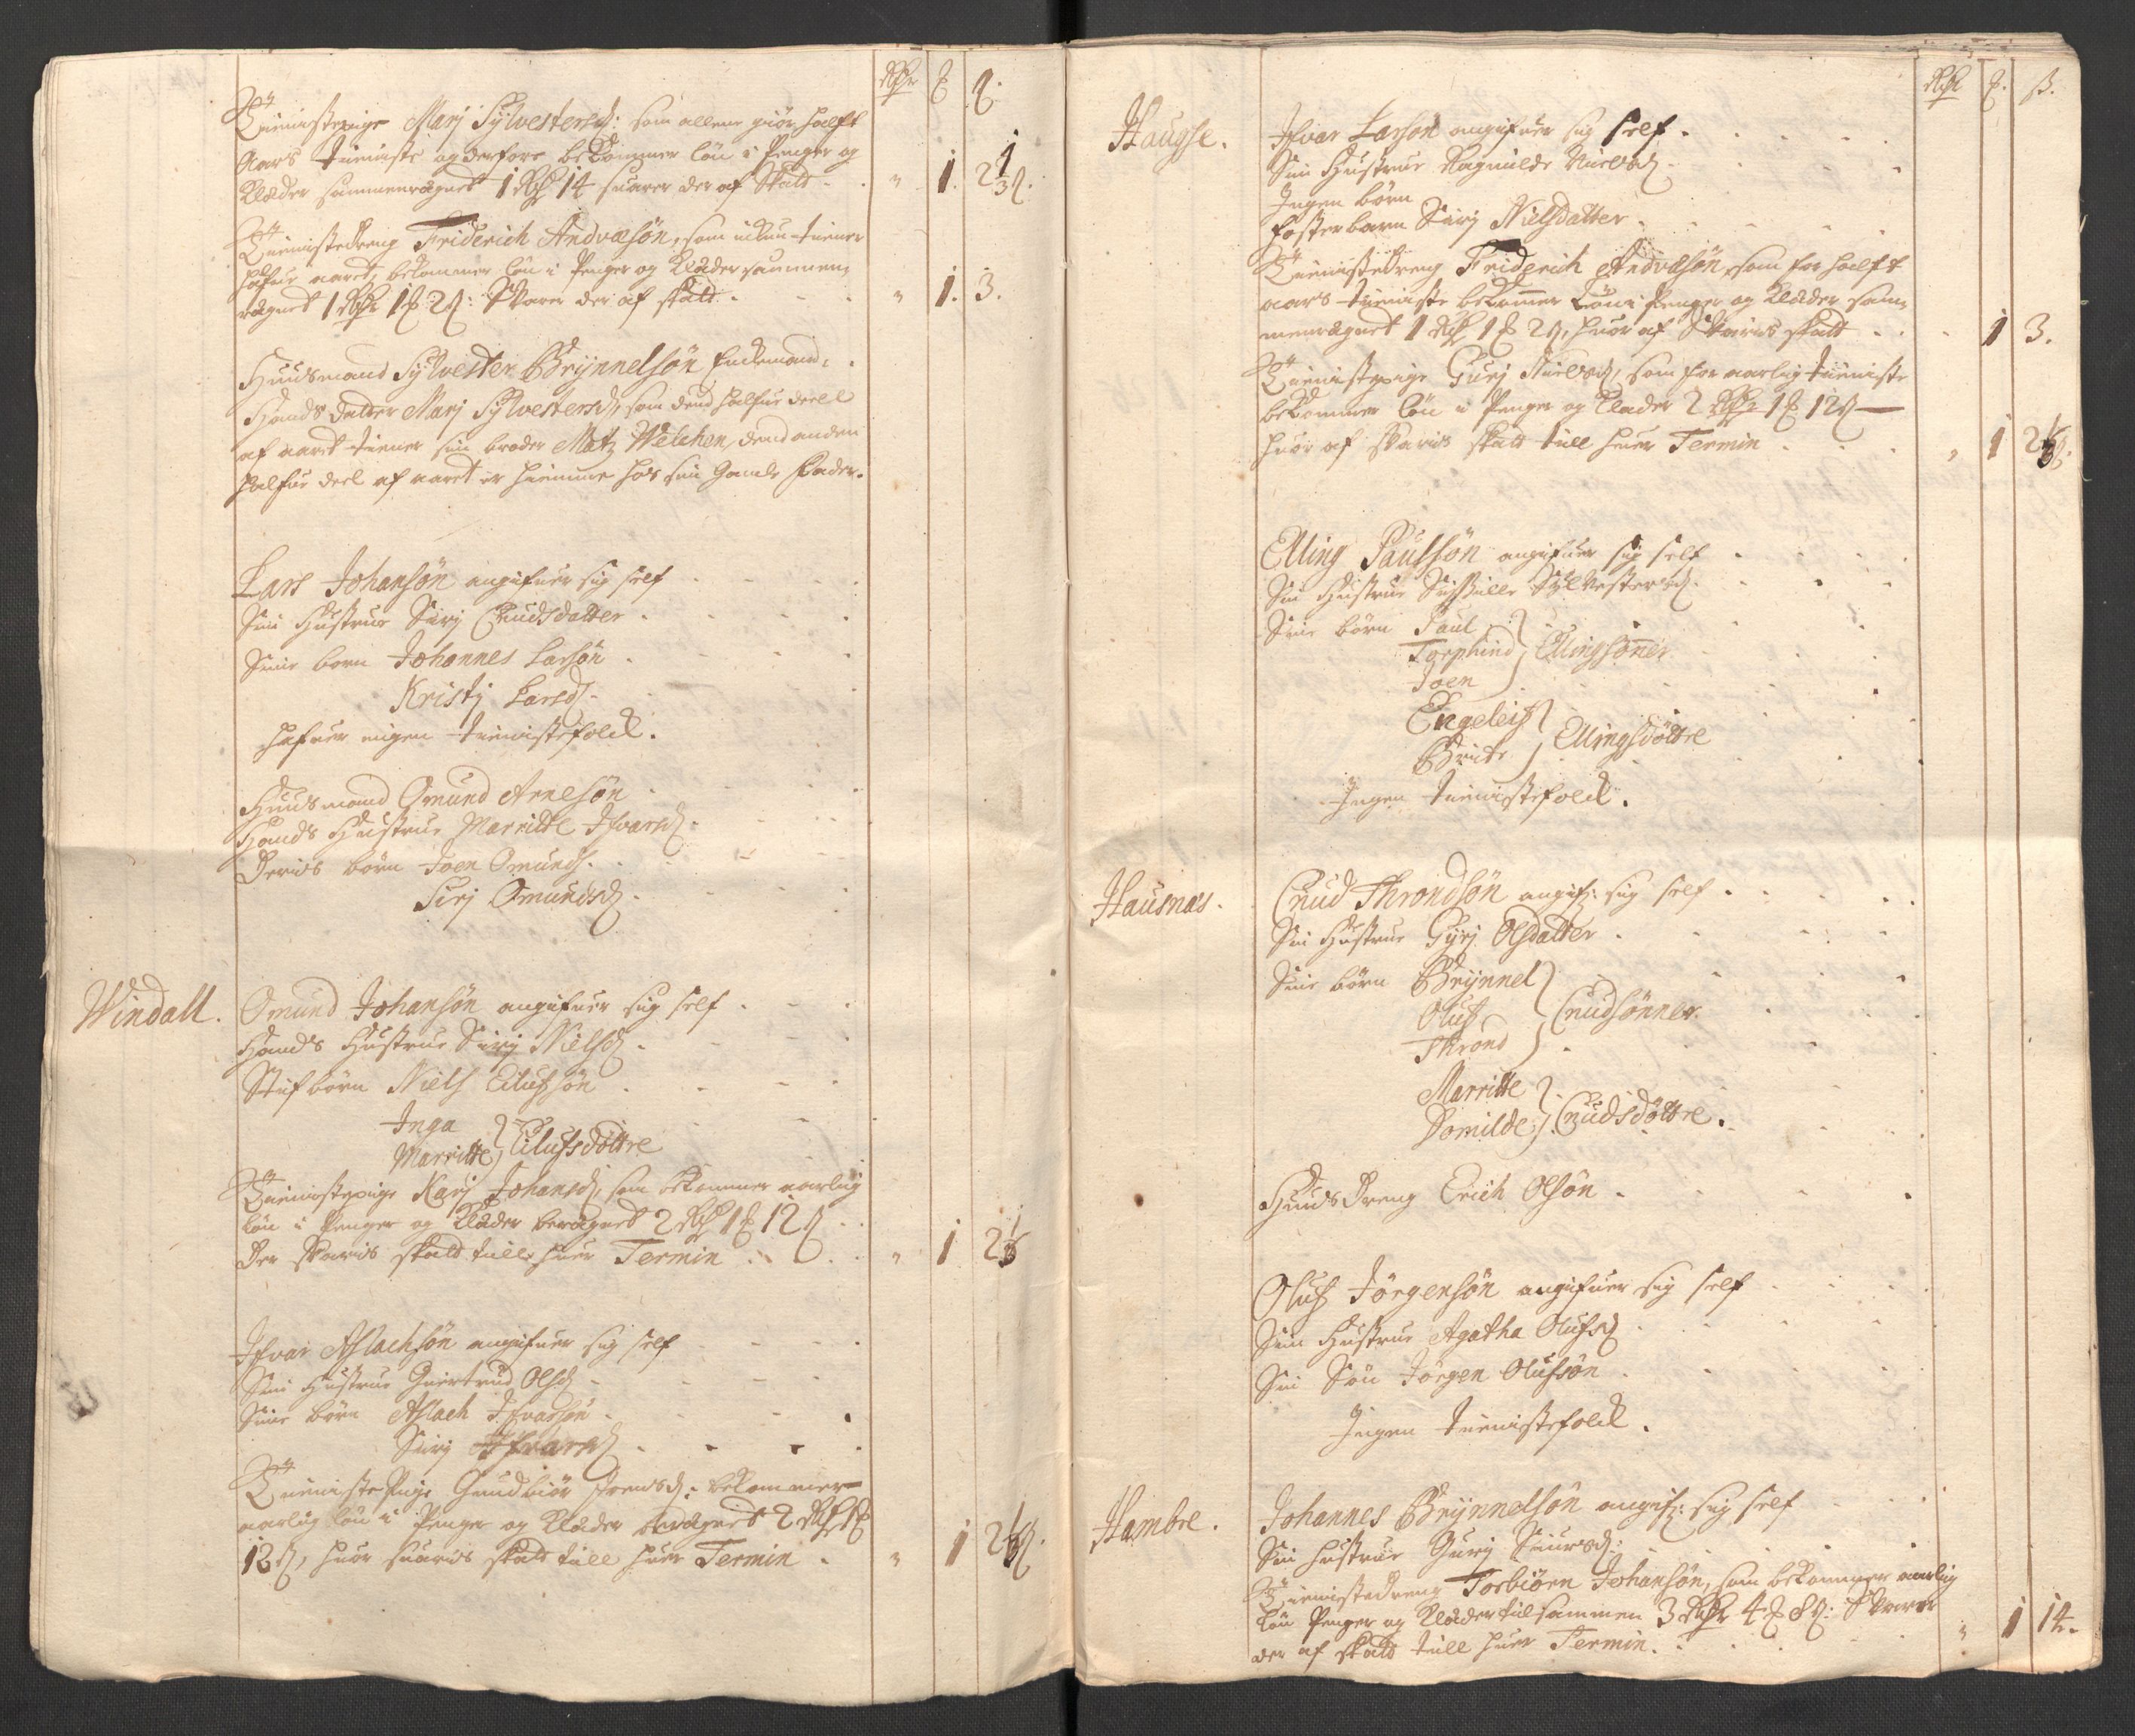 Rdr ₰ ß.
Tienistepige Marj Sylvestersd: som allene giör halft
Aars tieniste og derfore bekommer lön i Penger og
Klæder sammenregnet 1 Rdr 14 suarer der af Skatt - „ 1. 2 1/3 ß.
Tienistedreng Friderich Andvæsön, som ickun tiener
halfue aaret, bekommer lön i Penger og Klæder sammen,
regnet 1 Rdr 1 2 ß: Svarer der af skatt - „ 1. 3.
Huusmand Sylvester Brÿnnelsön Enckemand,
Hands datter Marj Sylvestersd, som dend halfue deell
af aaret tiener sin broder Matz Welchen, dend anden
halfue deel af aaret er hiemme hos sin Gamle Fader.
Lars Johansön angifuer sig self
Sin Hustrue Sirj Cnudsdatter
Sine born Johannes Larsön
Kristj Larsd
hafuer ingen tienistefolck.
Huusmand Omund Arnesön
Hands Hustrue Marritte Ifvarsd
Deris börn Joen Omunds.
Sirj Omundsd
Windall. Omund Johansön angifuer sig self
Hands Hustrue Sirj Nielsd
Stifbörn Niels Eilufsön
Inga
Marritte } Eilufsdöttre
Tienistepige Karj Johansd, som bekommer aarlig
lön i Penger og Klæder beregnet 2 Rdr 1 12 ß
Der Svaris skatt till huer Termin „ 1 2 1/3
Ifvar Aslachsön angifuer sig self
Sin Hustrue Giertrud Olsd
Sine börn Aslach Ifvarsön
Sirj Ifvarsd
TienistePige Gundbiör Joensd: bekommer
aarlig lön i Penger og Klæder beregnet 2 Rdr 1
12 ß, huor suaris skatt till huer Termin „ 1 2 1/3 ß.
Rdr ₰. ß.
Haugse. Ifvar Larsön angifuer sig self.
Sin Hustrue Ragnilde
Ingen börn
fosterbarn Sirj Nielsdatter
Tienistedreng Friderich Andvæsön, som for halft
aars tieniste bekommer Lön i Penger og Klæder sam,
menregnet 1 Rdr 1 2 ß, huor af Svaris skatt - 1 3.
Tienistepige Gurj, som for aarlig tieniste
bekommer lön i Penger og Klæder 2 Rdr 1 12 ß
huor af svaris skatt till huer Termin „ 1 2 1/3 ß.
Elling Paulsön angifuer sig self
Sin Hustrue Sylvestersd
Sine börn Paul
Torphind
Joen } Ellingsönner
Engelis
Britte } Ellingsdöttre
Ingen tienistefolck.
Hausnæs. Cnud Throndsön angif: sig self
Sin Hustrue Gyrj Olsdatter
Sine börn Brÿnnel
Oluf
Thrond } Cnudsönner.
Marritte
Domilde } Cnudsdöttre.
Huus Dreng Erich Olsön
Oluf Jörgensön angifuer sig self
Sin Hustrue Agatha Olufsd
Sin Sön Jörgen Olufsön
Ingen tienistefolck.
Hambre. Johannes Brÿnnelsön angif: sig self
Sin hustrue Gurj Siursd:
Tienistedreng Torbiörn Johansön, som bekommer aarlig
lön Penger og Klæder tilsammen 3 Rdr 4 8 ß: Svarer
der af skatt till huer Termin. „ 1 14.